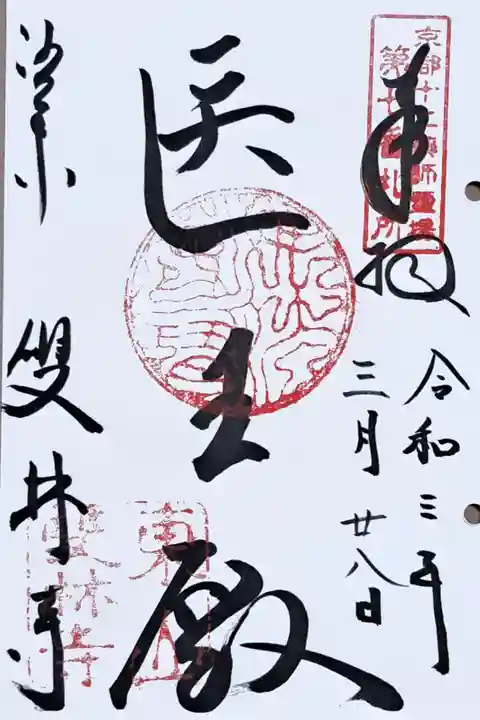 京都十二薬師霊場
第七番札所
奉拝
令和三年
三月廿八日
医王殿
洛東 雙林寺
東山
雙林寺